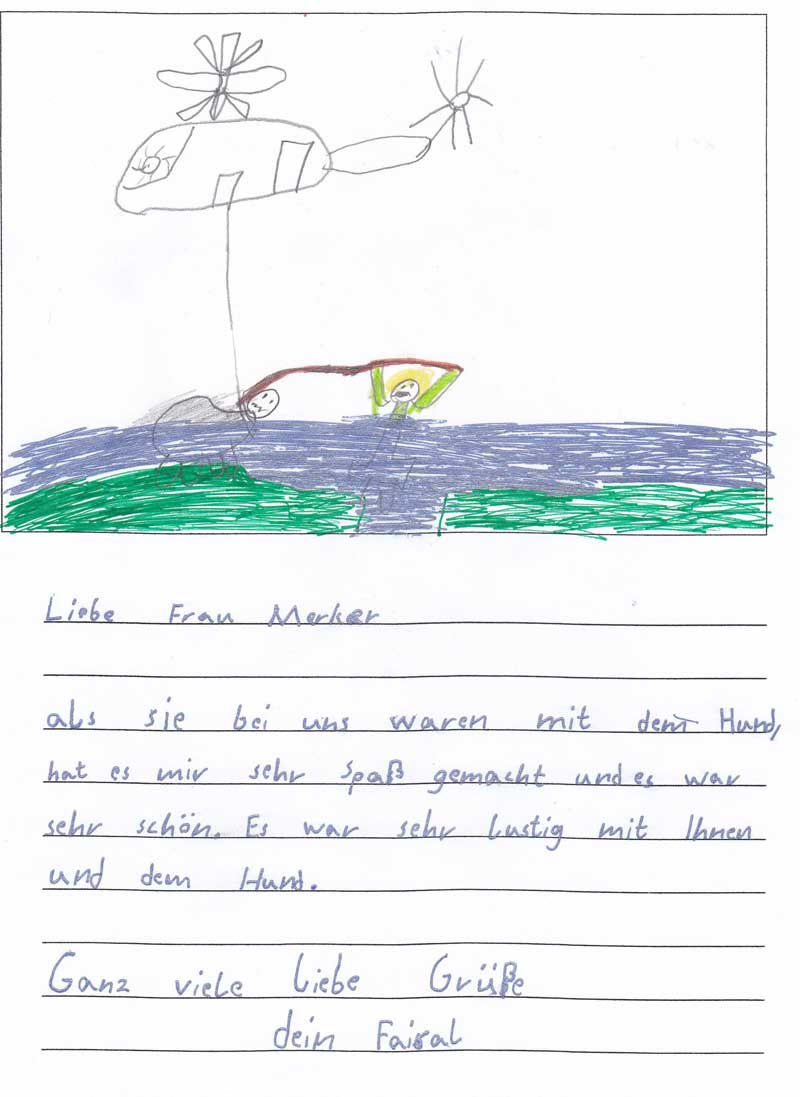 Liebe Frau Merker
als sie bei uns waren mit dem Hund,
hat es mir sehr Spaß gemacht und es war
sehr schön. Es war sehr lustig mit Ihnen
und dem Hund.
Ganz viele liebe Grüße
dein Faisal